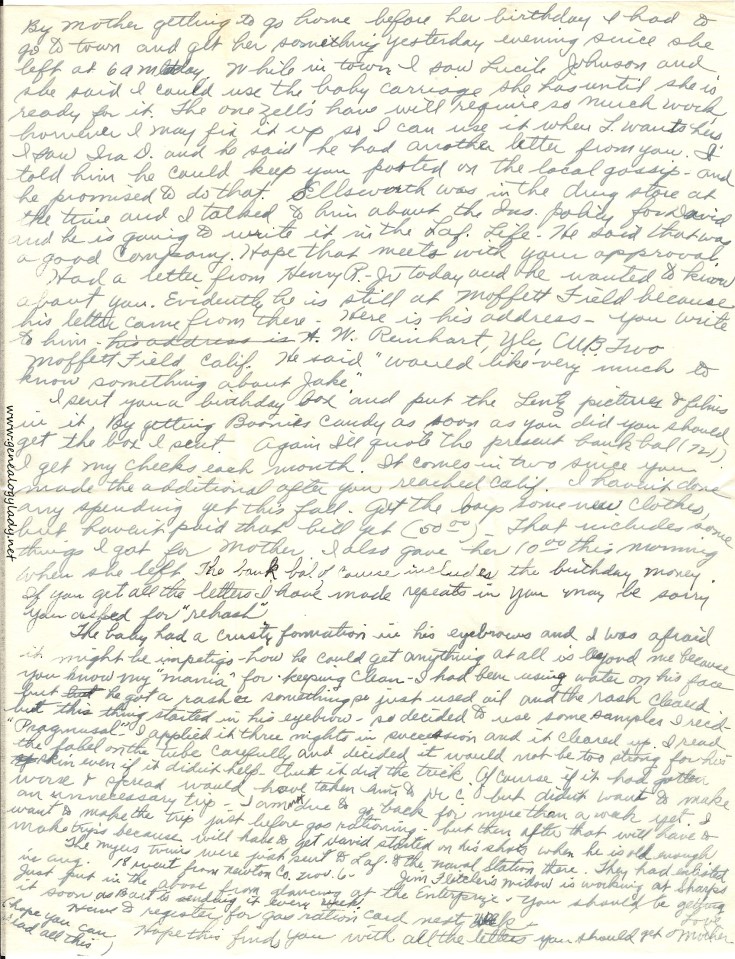 By Mother getting to go home before her birthday I had to
go to town and get her something yesterday evening since she
left at 6 am today. While in town I saw Lucile Johnson and
she said I could use the baby carriage she has until she is
ready for it. The one Zell's have will require so much work
however I may fix it up so I can use it when L. wants hers
I saw Ira D. and he said he had another letter from you. I
told him he could keep you posted on the local gossip - and
he promised to do that. Ellsworth was in the drug store at
the time and I talked to him about the Ins. policy for David
and he is going to write it in the Laf. Life. He said that was
a good Company. Hope that meets with your approval.
Had a letter from Henry R. Jr today and he wanted to know
about you. Evidently he is still at Moffett Field because
his letter came from there. Here is his address - you write
to him - his address is H. W. Reinhart, Y2c, CUB Two
Moffett Field, Calif. He said "would like very much to
know something about Jake"
I sent you a birthday box and put the Lentz pictures & films
in it. By getting Boonies candy as soon as you did you should
get the box I sent. Again I'll quote the present bank bal (721)
I get my checks each month. It comes in two since you
made the additional after you reached Calif. I haven't done
any spending yet this fall. Got the boys some new clothes,
but haven't paid that bill yet (50 00) - That includes some
things I got for Mother. I also gave her 10 00 this morning
when she left. The bank bal of course includes the birthday money.
If you get all the letters I have made repeats in you may be sorry
you asked for "rehash"
The baby had a crusty formation in his eyebrows and I was afraid
it might be impetigo - how he could get anything at all is beyond me because
you know my "mania" for keeping clean - I had been using water on his face
but he got a rash or something so just used oil and the rash cleared
but this thing started in his eyebrow - so decided to use some samples I recd -
"Pragmasal" - I applied it three nights in succession and it cleared up. I read
the label on the tube carefully and decided it would not be too strong for his
skin even if it didn't help - but it did the trick. Of course if it had gotten
worse & spread would have taken him to Dr C. but didn't want to make
an unnecessary trip - I am not due to go back for more than a week yet. I
want to make the trip just before gas rationing - but then after that will have to
make trips because will have to get David started on his shots when he is old enough
The Myers twins were just sent to Laf. to the naval station there. They had enlisted
in Aug. 18 went from Newton Co. Nov. 6 - Jim Fletcher's widow is working at Sharps
Just put in the above from glancing at the Enterprise - You should be getting
it soon as Bart is sending it every week.
Have to register for gas ration card next week
Hope this finds you with all the letters you should get
Love
Mother
(hope you can
read all this)
www.genealogylady.net